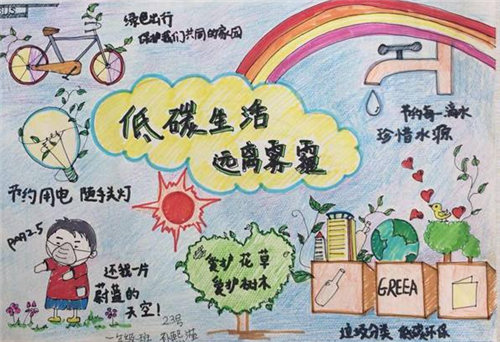 绿色出行
保护我们共同的家园
低碳生活
远离雾霾
节约每一滴水
珍惜水源
节约用电 随手关灯
PM2.5
还我一片
蔚蓝的
天空!
爱护花草
爱护树木
GREEA
垃圾分类 低碳环保
23号